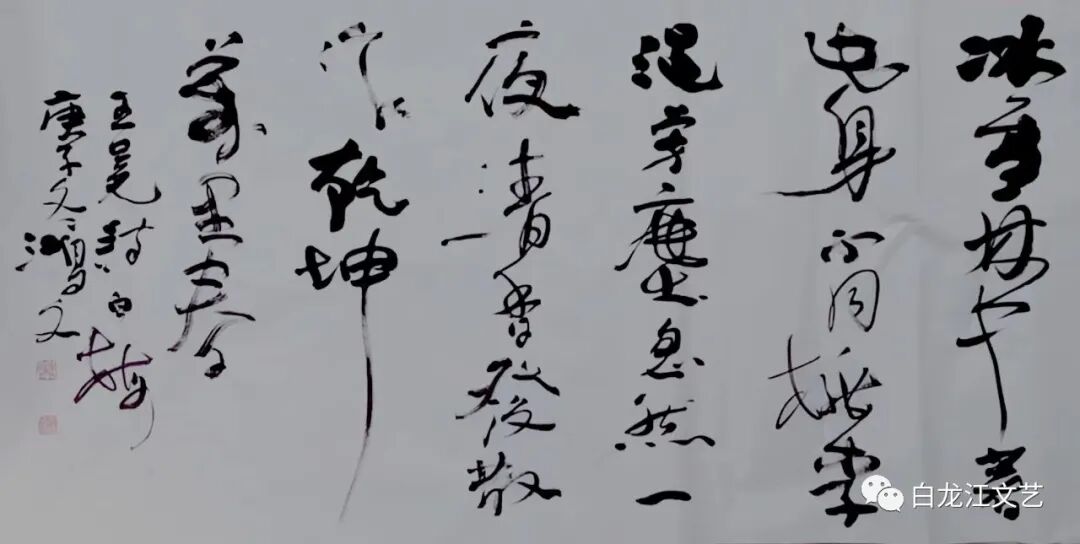 冰雪林中著
此身不同桃李
混芳塵忽然一
夜清香發散
作乾坤
萬里春
王冕詩白梅
庚子鴻文
白龙江文艺